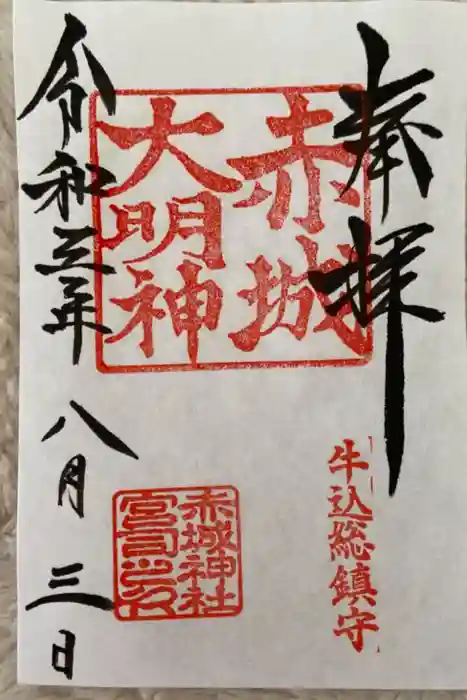 奉拝
牛込総鎮守
赤城
大明神
赤城神社
宮司之印
令和三年
八月三日